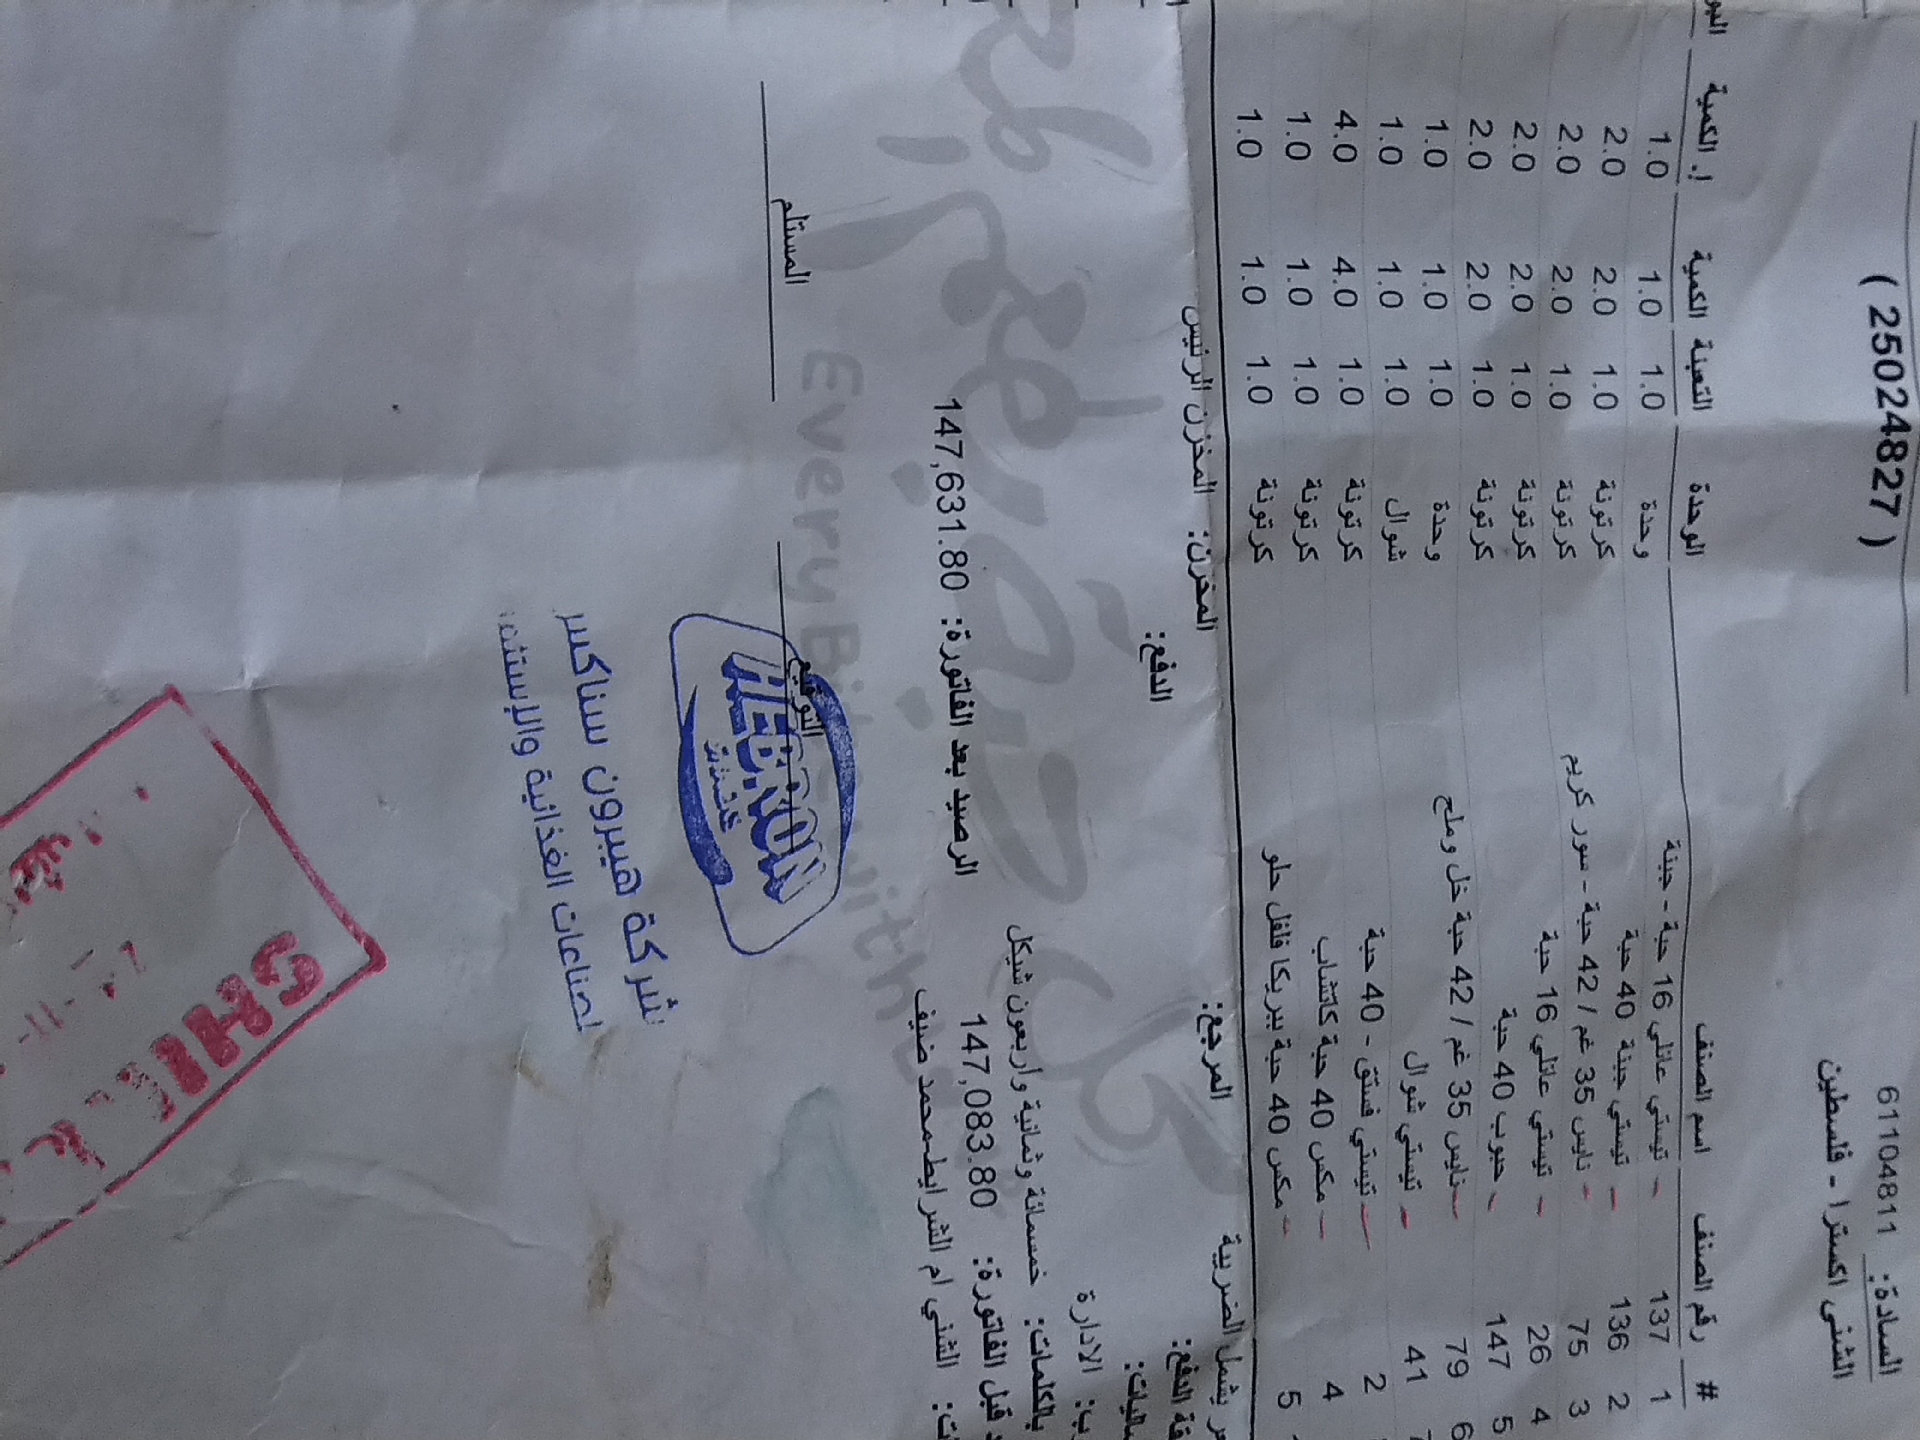 ( 25024827 )
السادة: 61104811
الشني اكسترا - فلسطين
# رقم الصنف اسم الصنف الوحدة التعبئة الكمية إ. الكمية
1 137 تيستي عائلي 16 حبة - جبنة وحدة 1.0 1.0 1.0
2 136 تيستي جبنة 40 حبة كرتونة 1.0 2.0 2.0
3 75 نايس 35 غم / 42 حبة - سور كريم كرتونة 1.0 2.0 2.0
4 26 تيستي عائلي 16 حبة كرتونة 1.0 2.0 2.0
5 147 حبوب 40 حبة كرتونة 1.0 2.0 2.0
6 79 نايس 35 غم / 42 حبة خل وملح وحدة 1.0 1.0 1.0
41 تيستي شوال شوال 1.0 1.0 1.0
2 تيستي فستق - 40 حبة كرتونة 1.0 4.0 4.0
4 مكس 40 حبة كاتشاب كرتونة 1.0 1.0 1.0
5 مكس 40 حبة بيريكا فلفل حلو كرتونة 1.0 1.0 1.0
يشمل الضريبة المرجع: المخزن: المخزن الرئيس
الدفع: الدفع:
الادارة
بالكلمات: خمسمائة وثمانية واربعون شيكل
قبل الفاتورة: 147,083.80 الرصيد بعد الفاتورة: 147,631.80
الشني ام الشرايط-محمد ضيف
كل حبة
Every with
التوقيع المستلم
HEBRON
شركة هيبرون سناكس
الغذائية
SHI